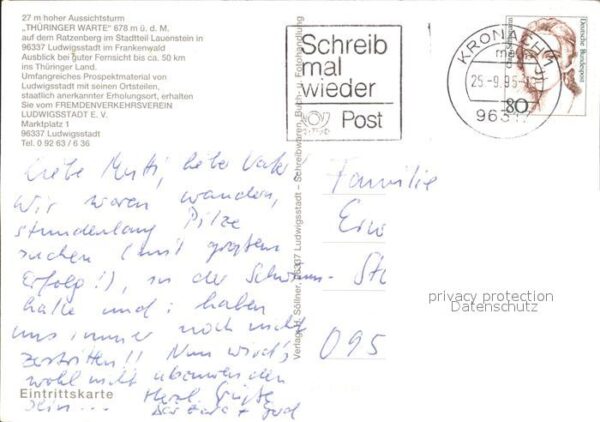 27 m hoher Aussichtsturm
„THÜRINGER WARTE" 678 m ü. d. M.
auf dem Ratzenberg im Stadtteil Lauenstein in
96337 Ludwigsstadt im Frankenwald
Ausblick bei guter Fernsicht bis ca. 50 km
ins Thüringer Land.
Umfangreiches Prospektmaterial von
Ludwigsstadt mit seinen Ortsteilen,
staatlich anerkannter Erholungsort, erhalten
Sie vom FREMDENVERKEHRSVEREIN
LUDWIGSSTADT E. V.
Marktplatz 1
96337 Ludwigsstadt
Tel. 0 92 63 / 6 36
Schreib
mal
wieder
Post
KRONACH
25-9.95
9631
80
Deutsche Bundespost
H. Söllner, 96337 Ludwigsstadt – Schreibwaren, Buch- u. Fotohandlung
Liebe Mutti, lieber Vati!
Wir waren wandern,
stundenlang Pilze
suchen (mit großem
Erfolg!), in der Schwimm-
halle und: haben
uns immer noch nicht
zerstritten!! Nun wird's
wohl nicht
sein... Herzl. Grüße
Familie
Erw
St
095
privacy protection
Datenschutz
Eintrittskarte